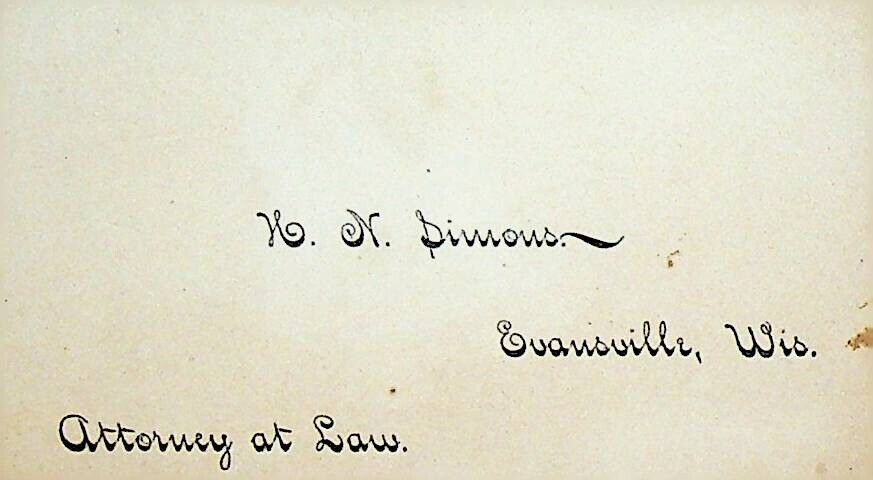 H. N. Simons.
Evansville, Wis.
Attorney at Law.